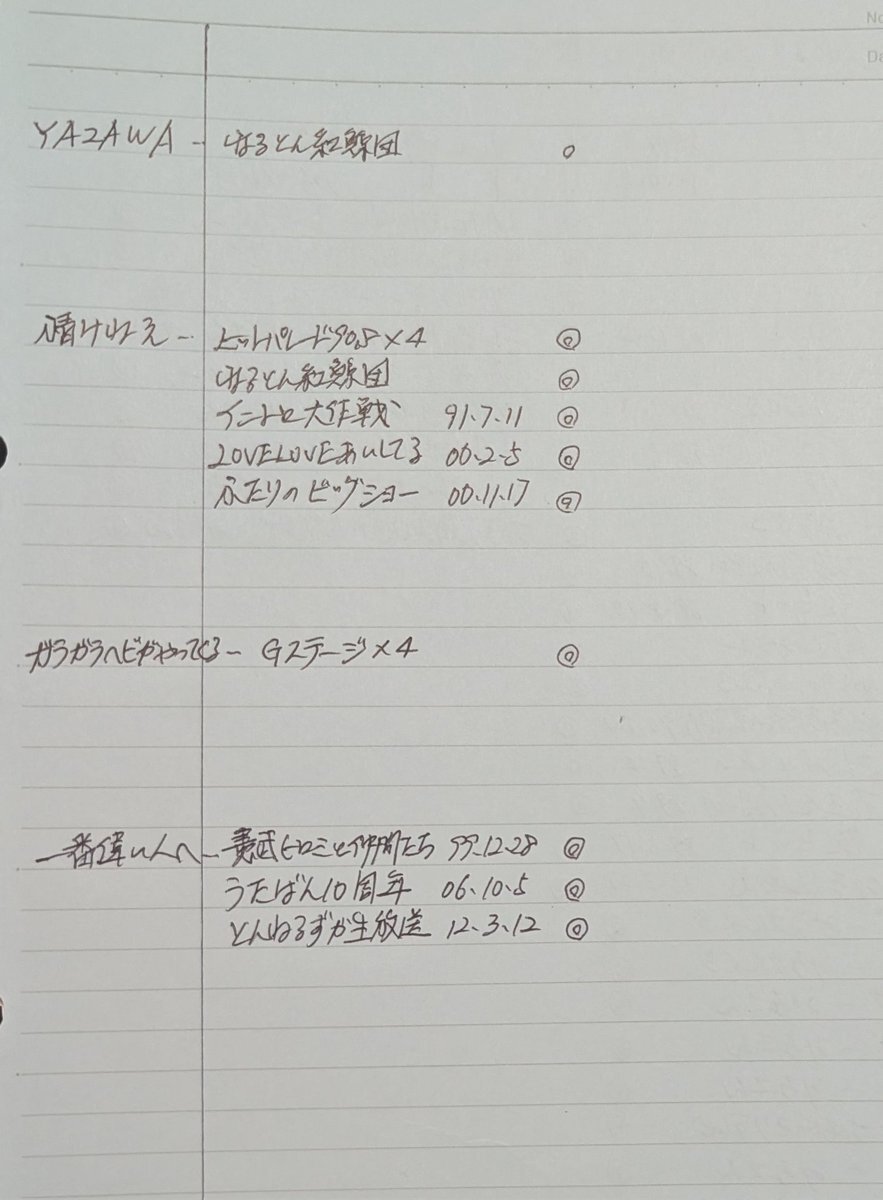 No
Da
YAZAWA - ねるとん紅鯨団 ○
情けねえ - ヒットパレード90's×4 ◎
ねるとん紅鯨団 ◎
イントロ大作戦 91.7.11 ◎
LOVELOVEあいしてる 00.2.5 ◎
ふたりのビッグショー 00.11.17 ◎
ガラガラヘビがやってくる - Gステージ×4 ◎
一番偉い人へ - 貴武ヒロミと仲間たち 99.12.28 ◎
うたばん10周年 06.10.5 ◎
とんねるずが生放送 12.3.12 ◎